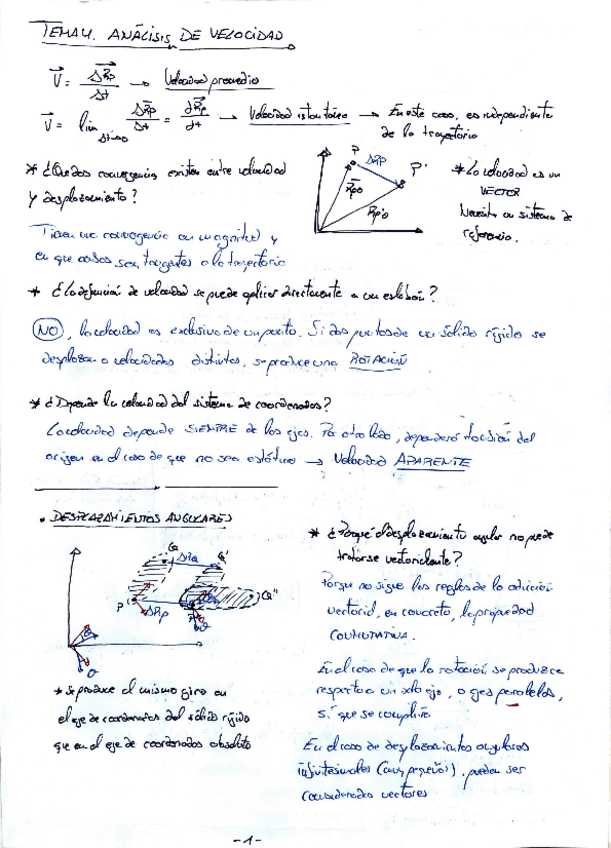 TEMA 4. ANÁLISIS DE VELOCIDAD
V = ΔRp / Δt → Velocidad promedio
V = lim Δt→0 ΔRp / Δt = dRp / dt → Velocidad istantánea → En este caso, es independiente
de la trayectoria
* ¿Que dos convergencias existen entre velocidad
y desplazamiento?
Tienen una convergencia en magnitud y
en que ambos son tangentes a la trayectoria
P ΔRp P'
Rpo
Rp'o
* La velocidad es un
VECTOR
Necesita un sistema de
referencia.
* ¿La definición de velocidad se puede aplicar directamente a un eslabón?
NO, la velocidad es exclusiva de un punto. Si dos puntos de un sólido rígido se
desplazan a velocidades distintas, se produce una ROTACIÓN
* ¿Depende la velocidad del sistema de coordenadas?
La velocidad depende SIEMPRE de los ejes. Por otro lado, dependerá también del
origen en el caso de que no sea estático → Velocidad APARENTE
• DESPLAZAMIENTOS ANGULARES
Q ΔRQ Q'
Q''
P ΔRp
θ
θ
* Se produce el mismo giro en
el eje de coordenadas del sólido rígido
que en el eje de coordenadas absoluto
* ¿Porqué el desplazamiento angular no puede
tratarse vectorialmente?
Porque no sigue las reglas de la adición
vectorial, en concreto, la propiedad
CONMUTATIVA.
En el caso de que la rotación se produzca
respecto a un solo eje, o ejes paralelos,
sí que se cumpliría
En el caso de desplazamientos angulares
infinitesimales (muy pequeños), pueden ser
considerados vectores
-1-